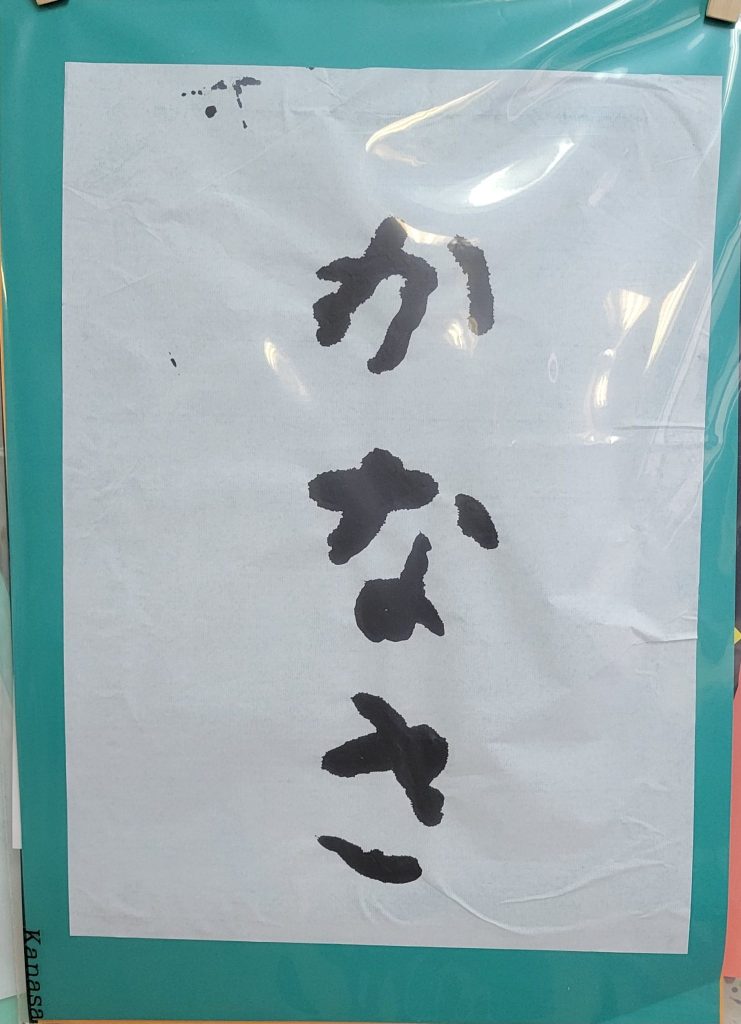 かなさ
Kanasa